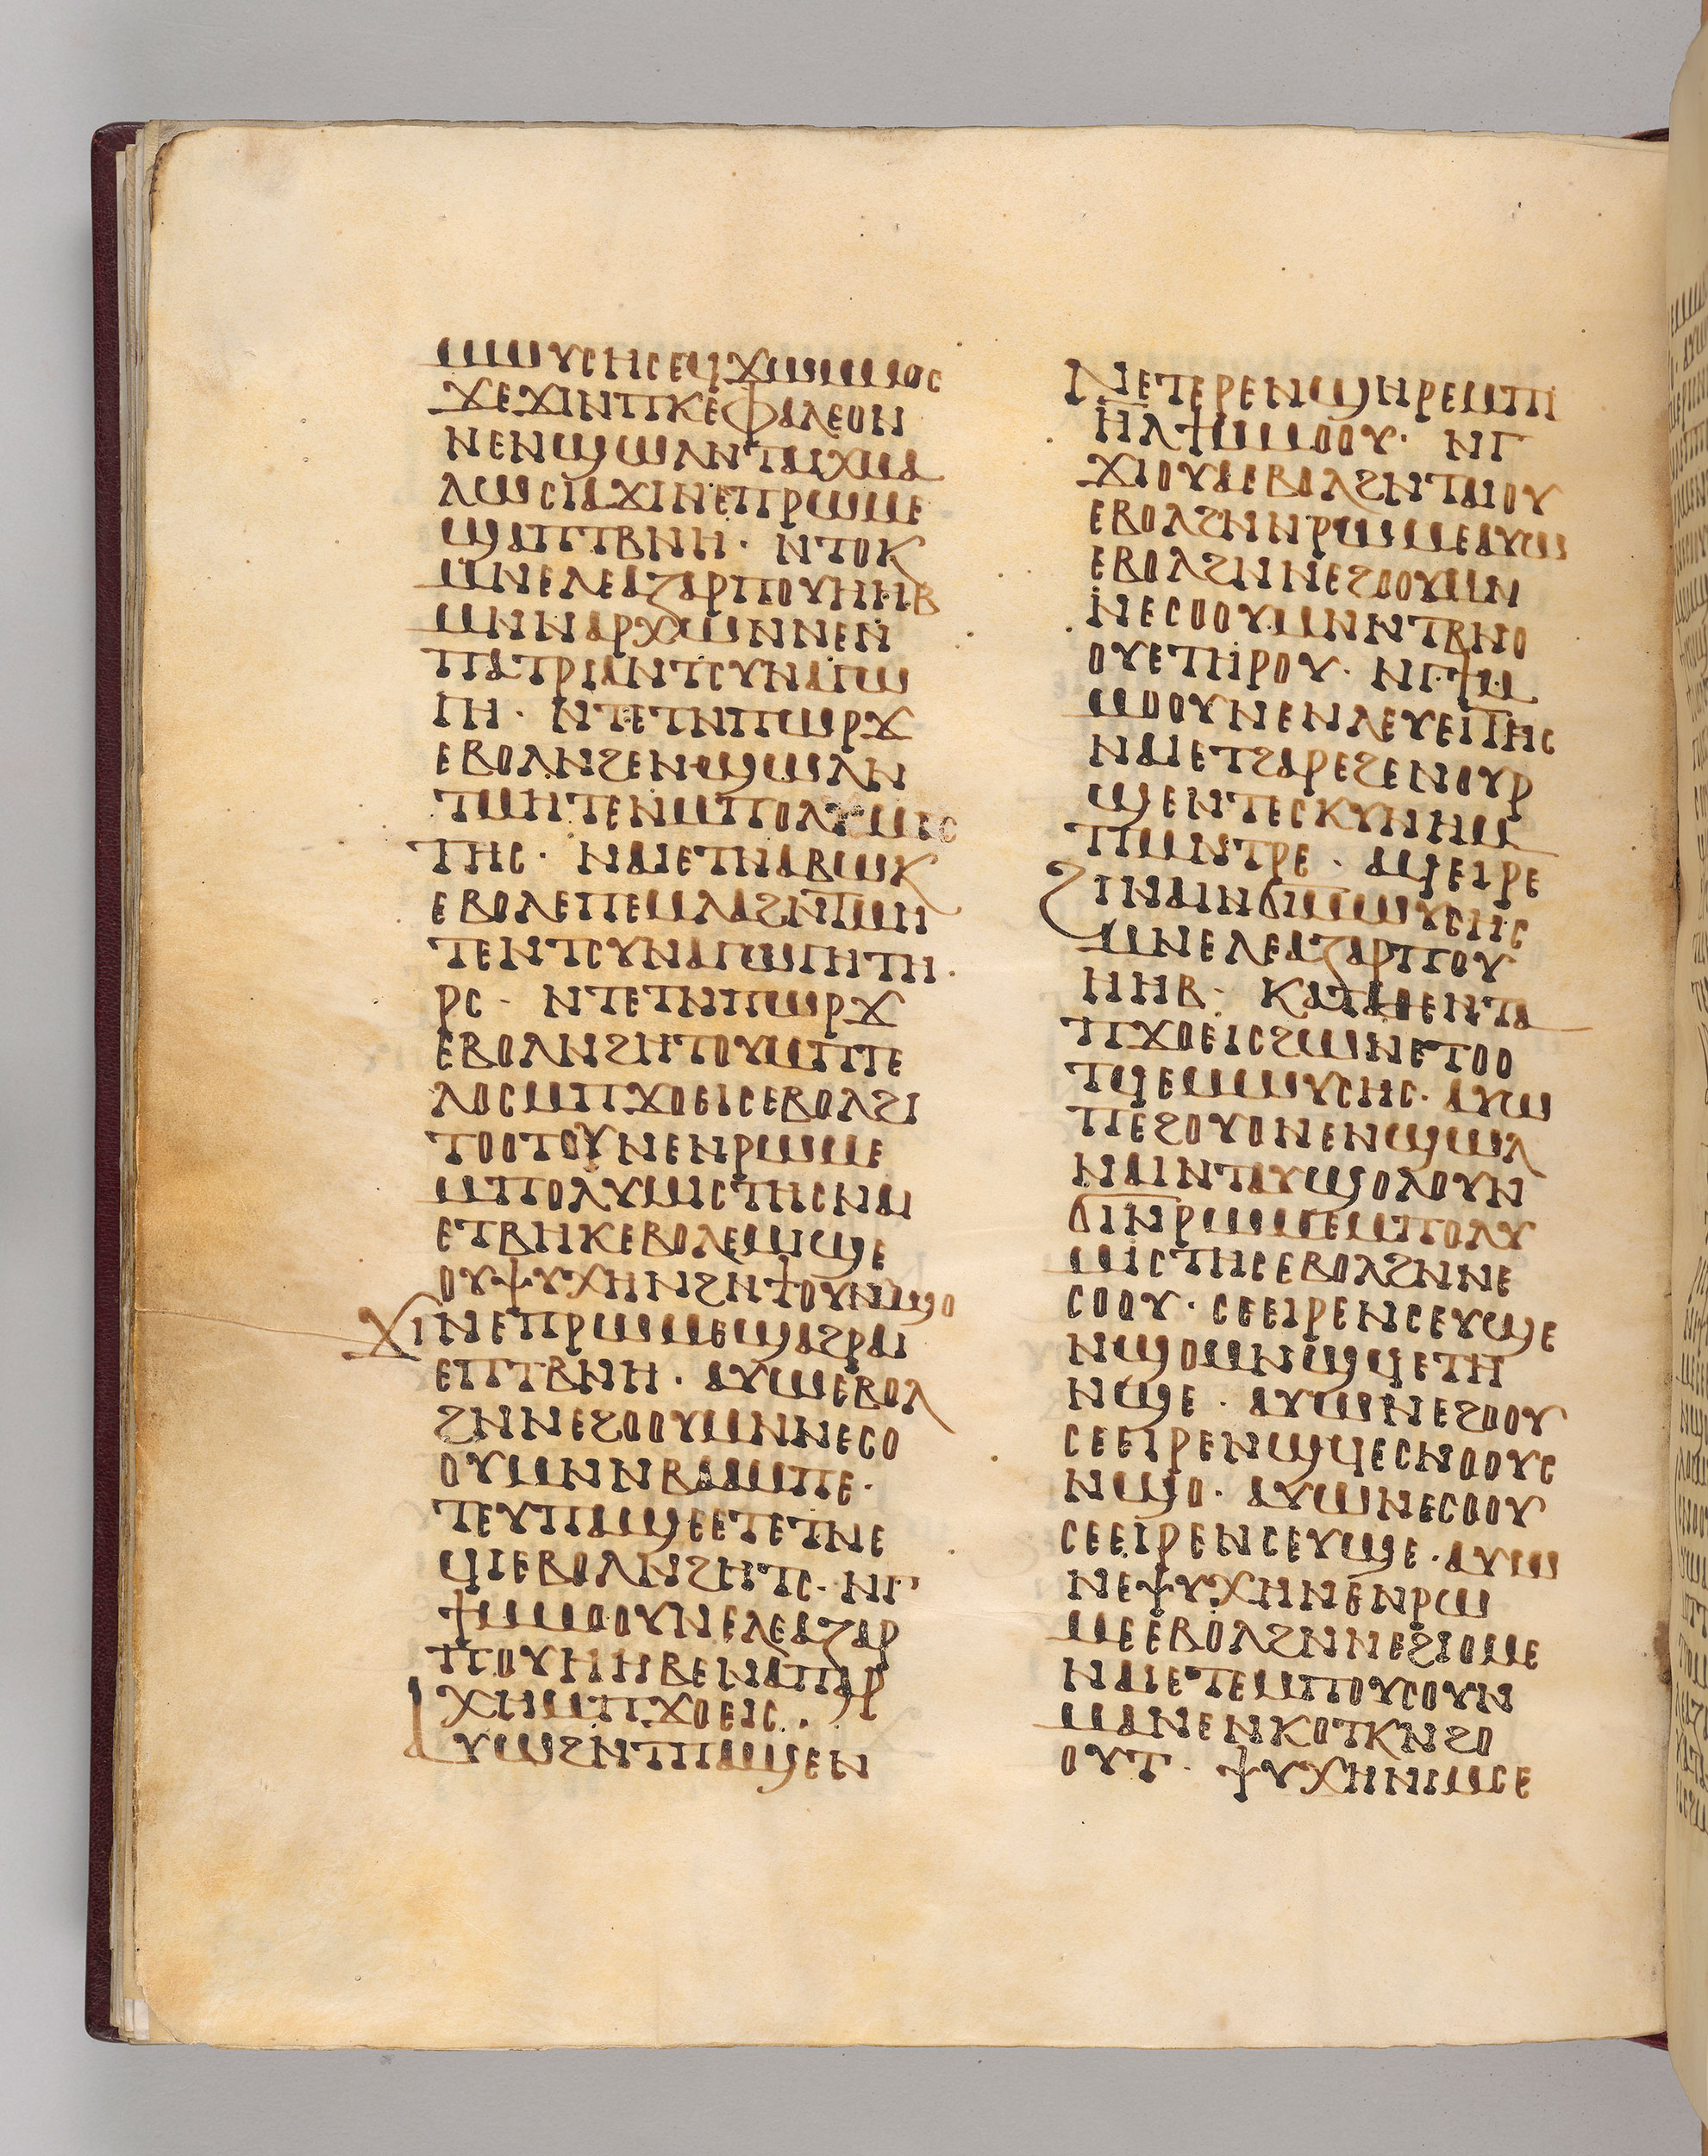 ⲙⲙⲱⲩⲥⲏⲥⲉϥϫⲱⲙⲙⲟⲥ
ϫⲉϫⲓⲛⲡⲕⲉⲫⲁⲗⲉⲟⲛ
ⲛⲉⲛϣⲱⲗⲛⲧⲁⲓⲭⲙⲁ
ⲗⲱⲥⲓⲁϫⲓⲛⲉⲡⲣⲱⲙⲉ
ϣⲁⲡⲧⲃⲛⲏ· ⲛⲧⲟⲕ
ⲙⲛⲉⲗⲉⲁⲍⲁⲣⲡⲟⲩⲏⲏⲃ
ⲙⲛⲛⲁⲣⲭⲱⲛⲛⲉⲛ
ⲡⲁⲧⲣⲓⲁⲛⲧⲥⲩⲛⲁⲅⲱ
ⲅⲏ· ⲛⲧⲉⲧⲛⲡⲱⲣϫ
ⲉⲃⲟⲗⲛϩⲉⲛϣⲱⲗⲛ
ⲧⲙⲏⲧⲉⲛⲙⲡⲟⲗⲩⲙⲓⲥ
ⲧⲏⲥ· ⲛⲁⲓⲉⲧⲛⲁⲃⲱⲕ
ⲉⲃⲟⲗⲉⲡⲉⲙⲗⲁϩⲛⲧⲙⲏ
ⲧⲉⲛⲧⲥⲩⲛⲁⲅⲱⲅⲏⲧⲏ·
ⲣⲥ· ⲛⲧⲉⲧⲛⲡⲱⲣϫ
ⲉⲃⲟⲗⲛϩⲏⲧⲟⲩⲙⲡⲧⲉ
ⲗⲟⲥⲙⲡϫⲟⲉⲓⲥⲉⲃⲟⲗϩⲓ
ⲧⲟⲟⲧⲟⲩⲛⲉⲛⲣⲱⲙⲉ
ⲙⲡⲟⲗⲩⲙⲓⲥⲧⲏⲥⲛⲁⲓ
ⲉⲧⲃⲏⲕⲉⲃⲟⲗⲉⲙⲓϣⲉ
ⲟⲩⲯⲩⲭⲏⲛϩⲏϯⲟⲩⲛϣⲟ
ϫⲓⲛⲉⲡⲣⲱⲙⲉϣⲁϩⲣⲁⲓ
ⲉⲡⲧⲃⲛⲏ· ⲁⲩⲱⲉⲃⲟⲗ
ϩⲛⲛⲉϩⲟⲟⲩⲙⲛⲛⲉⲥⲟ
ⲟⲩⲙⲛⲛⲃⲁⲁⲙⲡⲉ·
ⲧⲉⲩⲡⲁϣⲉⲉⲧⲉⲧⲛⲉ
ϥⲓⲉⲃⲟⲗⲛϩⲏⲧⲥ· ⲛⲅ
ϯⲙⲙⲟⲟⲩⲛⲉⲗⲉⲁⲍⲁⲣ
ⲡⲟⲩⲏⲏⲃⲉⲛⲁⲡⲁⲣ
ⲭⲏⲙⲡϫⲟⲉⲓⲥ·
ⲁⲩⲱϩⲛⲧⲡⲁϣⲉⲛ
ⲛⲉⲧⲉⲣⲉⲛϣⲏⲣⲉⲙⲡⲓ
ⲏⲗϯⲙⲙⲟⲟⲩ· ⲛⲅ
ϫⲓⲟⲩⲁⲉⲃⲟⲗϩⲛⲧⲁⲓⲟⲩ
ⲉⲃⲟⲗϩⲛⲛⲣⲱⲙⲉⲁⲩⲱ
ⲉⲃⲟⲗϩⲛⲛⲉϩⲟⲟⲩⲙⲛ
ⲛⲉⲥⲟⲟⲩⲙⲛⲛⲧⲃⲛⲟ
ⲟⲩⲉⲧⲏⲣⲟⲩ· ⲛⲅϯⲙ
ⲙⲟⲟⲩⲛⲉⲛⲗⲉⲩⲉⲓⲧⲏⲥ
ⲛⲁⲓⲉⲧϩⲁⲣⲉϩⲉⲛⲟⲩⲣ
ϣⲉⲛⲧⲉⲥⲕⲩⲛⲏⲙ
ⲡⲙⲛⲧⲣⲉ· ⲁϥⲉⲓⲣⲉ
ϩⲓⲛⲁⲓⲛϭⲓⲙⲱⲩⲥⲏⲥ
ⲙⲛⲉⲗⲉⲁⲍⲁⲣⲡⲟⲩ
ⲏⲏⲃ· ⲕⲁⲧⲁⲑⲉⲛⲧⲁ
ⲡϫⲟⲉⲓⲥϩⲱⲛⲉⲧⲟⲟ
ⲧϥⲉⲙⲙⲱⲩⲥⲏⲥ· ⲁⲩⲱ
ⲡⲉϩⲟⲩⲟⲛⲉⲛϣⲱⲗ
ⲛⲁⲓⲛⲧⲁⲩϣⲟⲗⲟⲩⲛ
ϭⲓⲛⲣⲱⲙⲉⲙⲡⲟⲗⲩ
ⲙⲓⲥⲧⲏⲥⲉⲃⲟⲗϩⲛⲛⲉ
ⲥⲟⲟⲩ· ⲥⲉⲉⲓⲣⲉⲛⲥⲉⲩϣⲉ
ⲛϣⲟⲙⲛϣϥⲉⲧⲏ
ⲛϣⲉ· ⲁⲩⲱⲛⲉϩⲟⲟⲩ
ⲥⲉⲉⲓⲣⲉⲛϣϥⲉⲥⲛⲟⲟⲩⲥ
ⲛϣⲟ· ⲁⲩⲱⲛⲉⲥⲟⲟⲩ
ⲥⲉⲉⲓⲣⲉⲛⲥⲉⲩϣⲉ· ⲁⲩⲱ
ⲛⲉⲯⲩⲭⲏⲛⲉⲛⲣⲱ
ⲙⲉⲉⲃⲟⲗϩⲛⲛⲉϩⲓⲟⲙⲉ
ⲛⲁⲓⲉⲧⲉⲙⲡⲟⲩⲥⲟⲩⲛ
ⲙⲁⲛⲉⲛⲕⲟⲧⲕⲛϩⲟ
ⲟⲩⲧ· ⲯⲩⲭⲏⲛⲓⲙⲥⲉ